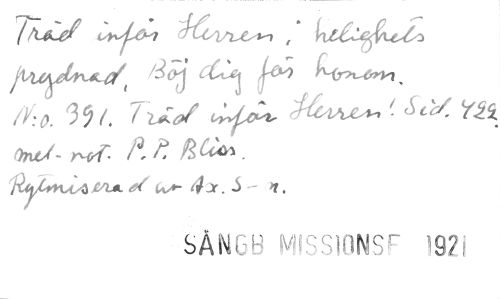 Träd inför Herren, i helighets
prydnad, Böj dig för honom.
N:o. 391. Träd inför Herren! Sid. 422.
mel. not. P. P. Bliss.
Rytmiserad av Ax. S-n.
SÅNGB MISSIONSF 1921